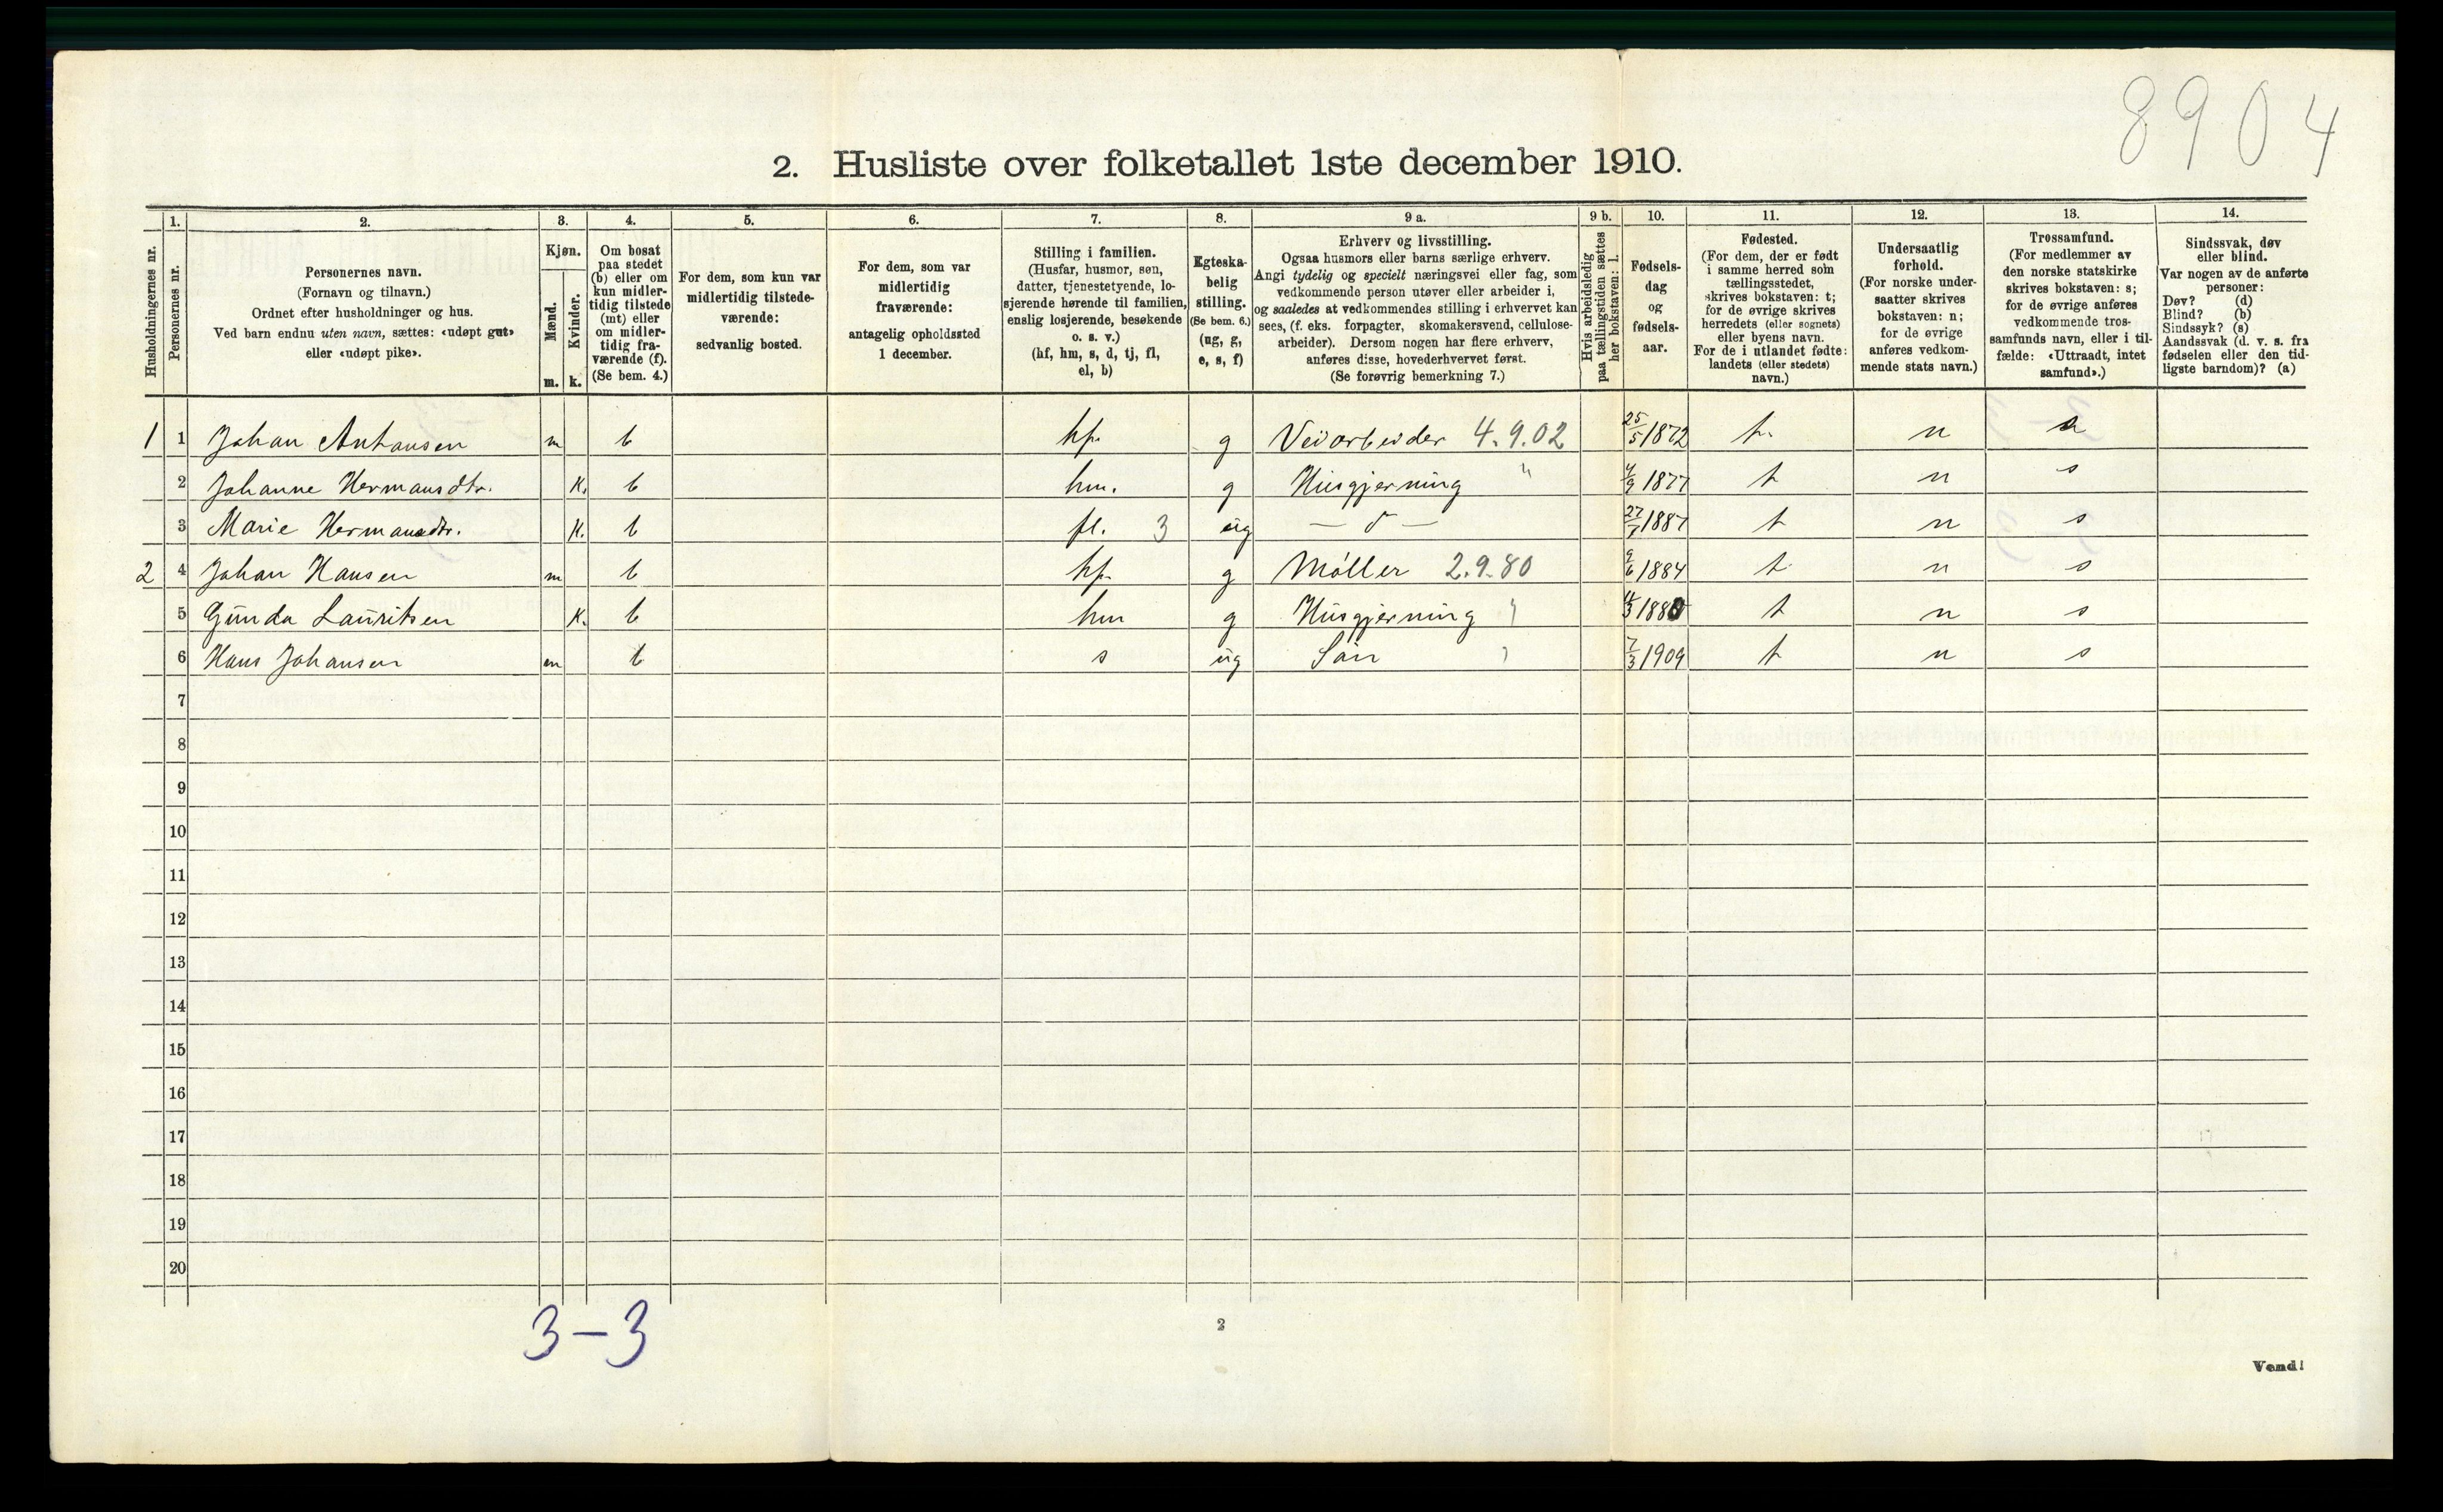 8904
2. Husliste over folketallet 1ste december 1910.
Husholdningernes nr.
1.
Personernes nr.
2.
Personernes navn.
(Fornavn og tilnavn.)
Ordnet efter husholdninger og hus.
Ved barn endnu uten navn, sættes: «udøpt gut»
eller «udøpt pike».
3.
Kjøn.
Mænd.
Kvinder.
m. k.
4.
Om bosat
paa stedet
(b) eller om
kun midler-
tidig tilstede
(mt) eller
om midler-
tidig fra-
værende (f).
(Se bem. 4.)
5.
For dem, som kun var
midlertidig tilstede-
værende:
sedvanlig bosted.
6.
For dem, som var
midlertidig
fraværende:
antagelig opholdssted
1 december.
7.
Stilling i familien.
(Husfar, husmor, søn,
datter, tjenestetyende, lo-
sjerende hørende til familien,
enslig losjerende, besøkende
o. s. v.)
(hf, hm, s, d, tj, fl,
el, b)
8.
Egteska-
belig
stilling.
(Se bem. 6.)
(ug, g,
e, s, f)
9 a.
Erhverv og livsstilling.
Ogsaa husmors eller barns særlige erhverv.
Angi tydelig og specielt næringsvei eller fag, som
vedkommende person utøver eller arbeider i,
og saaledes at vedkommendes stilling i erhvervet kan
sees, (f. eks. forpagter, skomakersvend, cellulose-
arbeider). Dersom nogen har flere erhverv,
anføres disse, hovederhvervet først.
(Se forøvrig bemerkning 7.)
9 b.
Hvis arbeidsledig
paa tællingstiden sættes
her bokstaven: l.
10.
Fødsels-
dag
og
fødsels-
aar.
11.
Fødested.
(For dem, der er født
i samme herred som
tællingsstedet,
skrives bokstaven: t;
for de øvrige skrives
herredets (eller sognets)
eller byens navn.
For de i utlandet fødte:
landets (eller stedets)
navn.)
12.
Undersaatlig
forhold.
(For norske under-
saatter skrives
bokstaven: n;
for de øvrige
anføres vedkom-
mende stats navn.)
13.
Trossamfund.
(For medlemmer av
den norske statskirke
skrives bokstaven: s;
for de øvrige anføres
vedkommende tros-
samfunds navn, eller i til-
fælde: «Uttraadt, intet
samfund».)
14.
Sindssvak, døv
eller blind.
Var nogen av de anførte
personer:
Døv? (d)
Blind? (b)
Sindssyk? (s)
Aandssvak (d. v. s. fra
fødselen eller den tid-
ligste barndom)? (a)
1 1 Johan Antonsen m b hf. g Veiarbeider 4.9.02 25/5 1872 t. n s
2 Johanne Hermansdtr. K. b hm. g Husgjerning " 4/9 1877 t n s
3 Marie Hermansdtr. K. b fl. 3 ug — d — 27/7 1887 t n s
2 4 Johan Hansen m b hf. g Møller 2.9.80 9/6 1884 t n s
5 Gunda Lauritsen K. b hm g Husgjerning " 1880 t n s
6 Hans Johansen m b s ug Søn " 7/3 1909 t n s
7
8
9
10
11
12
13
14
15
16
17
18
19
20
3 – 3
2
Vend!